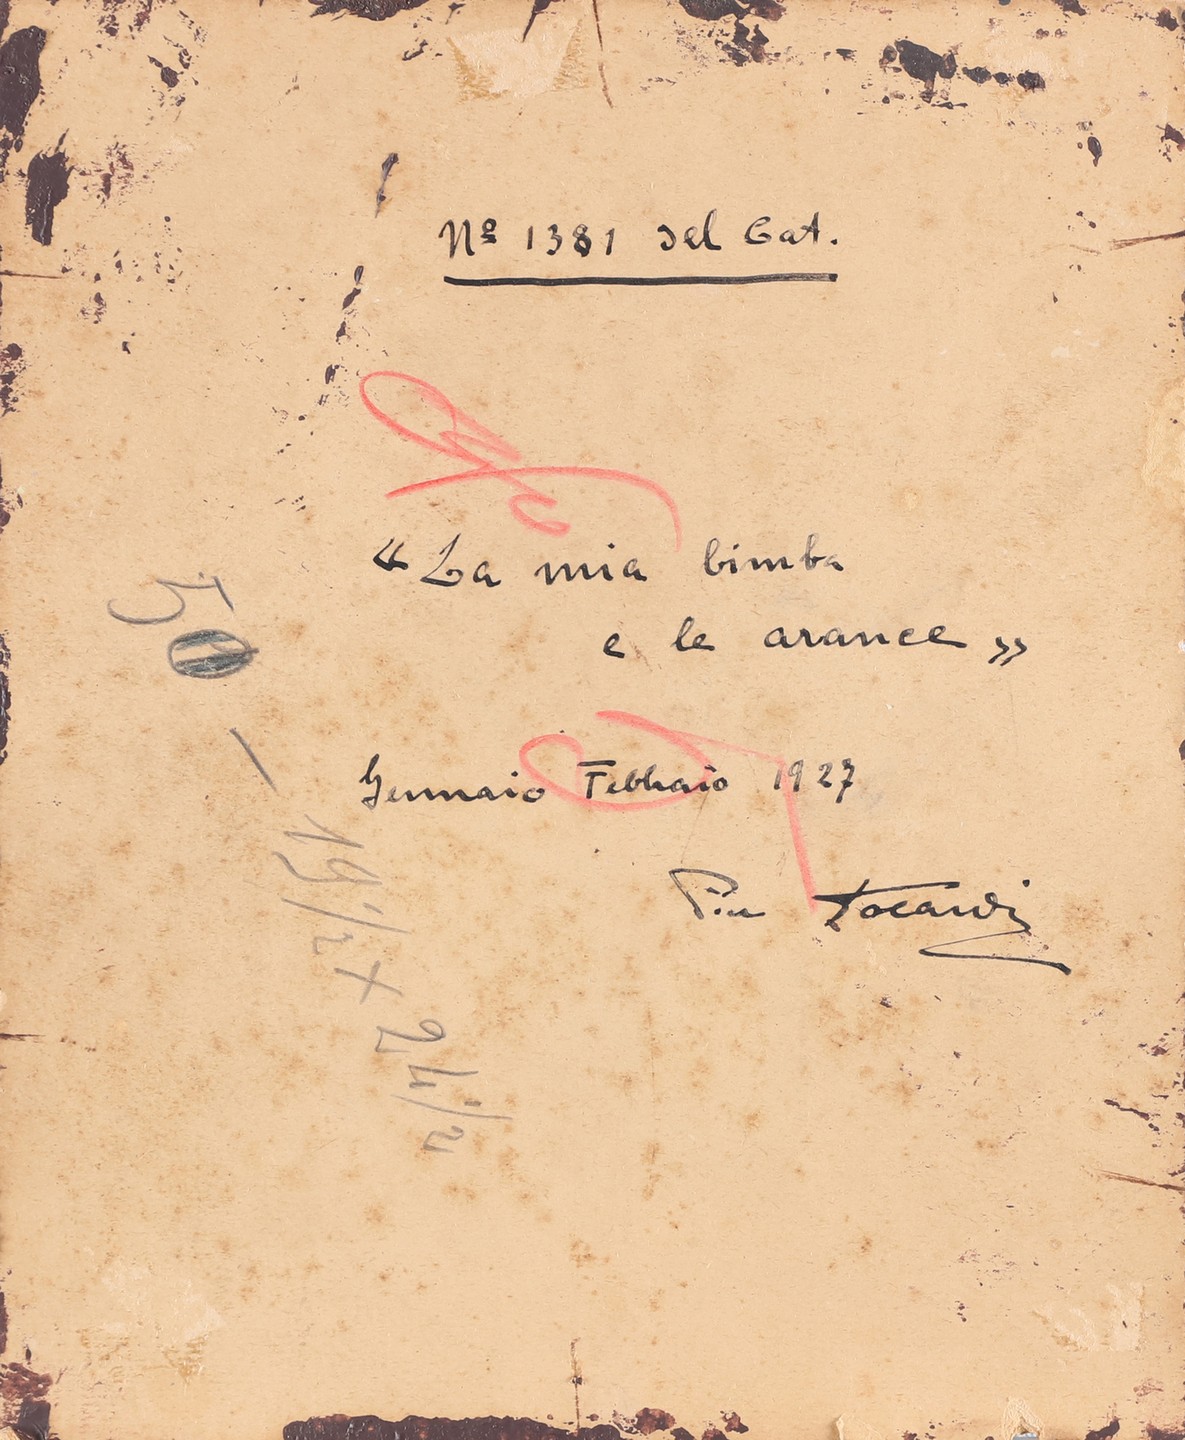 Nº 1381 del Cat.
« La mia bimba
e le arance »
Gennaio Febbraio 1927
50 – 19 1/2 x 24 1/2